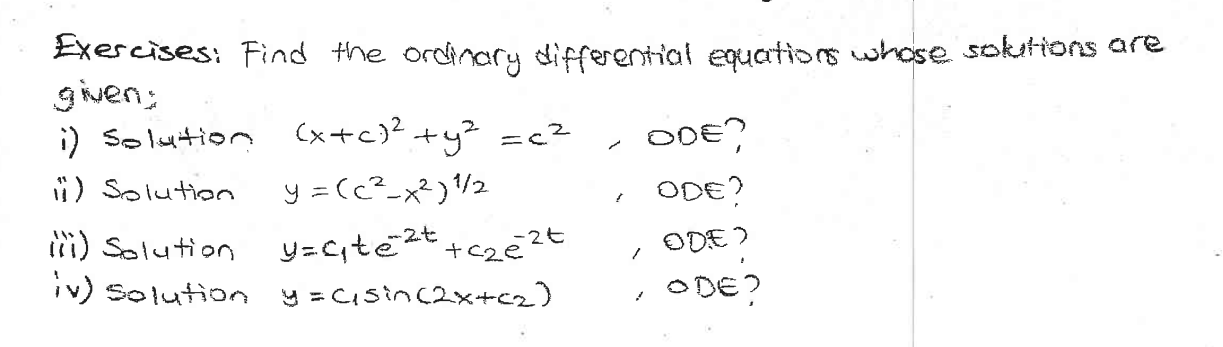 Exercises: Find the ordinary differential equations whose solutions are
given;
i) Solution (x+c)² + y² = c² , ODE?
ii) Solution y = (c² - x²)^1/2 , ODE?
iii) Solution y = c₁te^-2t + c₂e^-2t , ODE?
iv) Solution y = c₁sin(2x+c₂) , ODE?